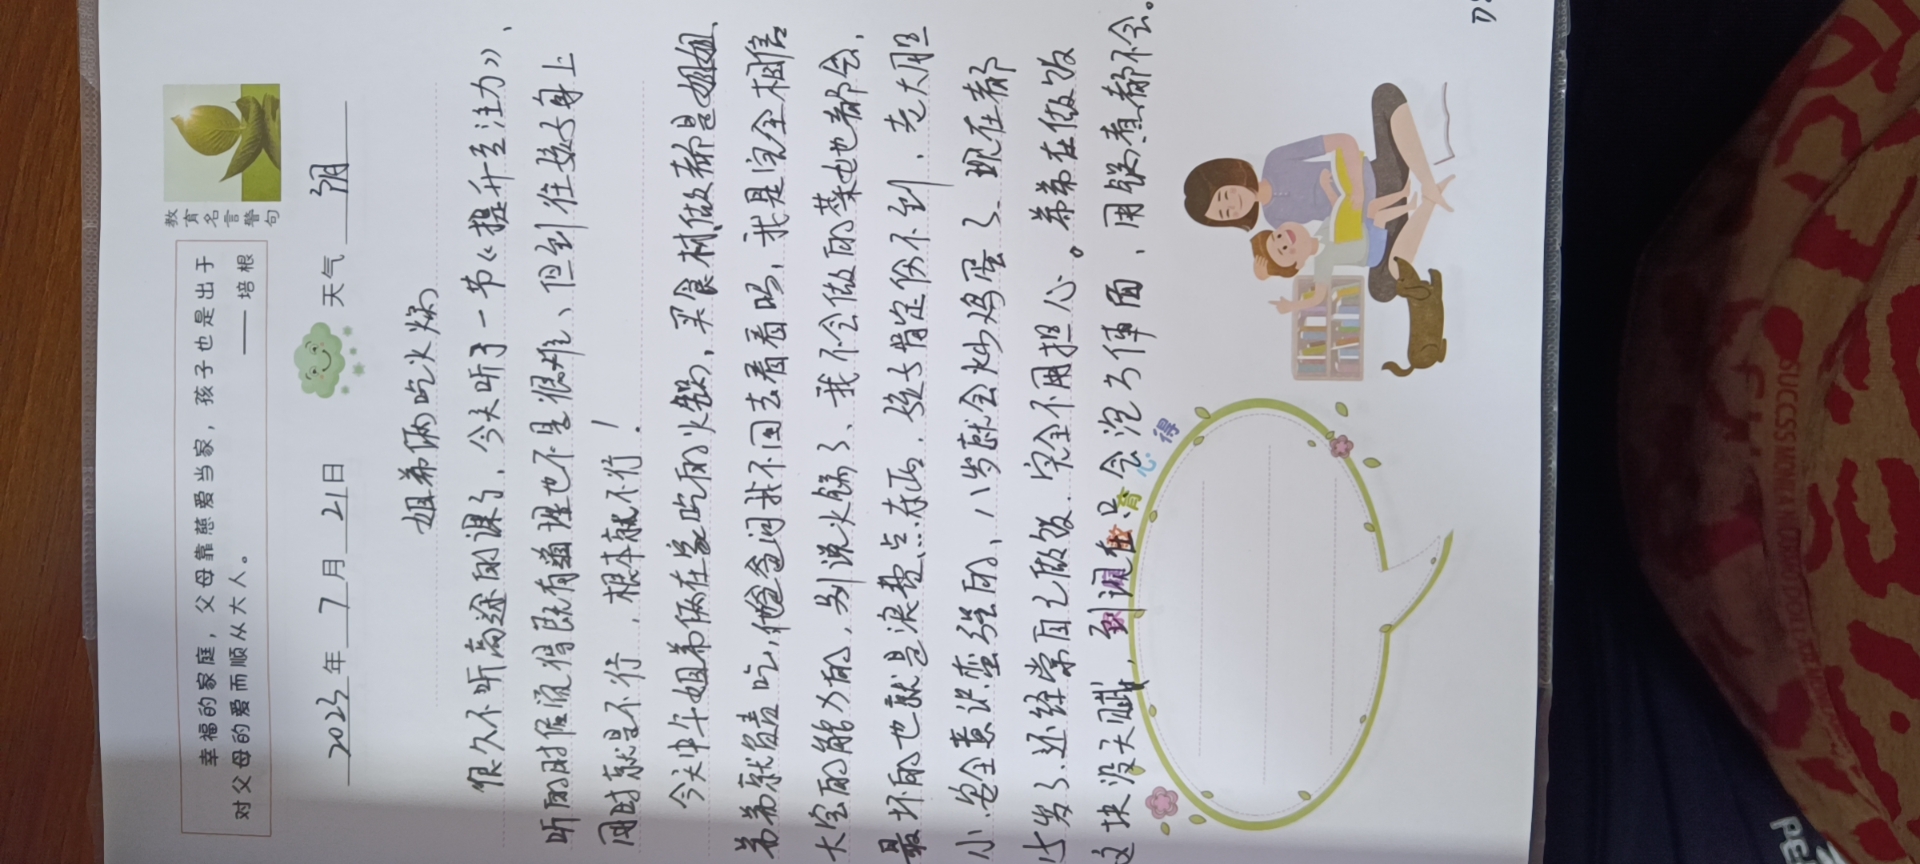 幸福的家庭，父母靠慈爱当家，孩子也是出于
对父母的爱而顺从大人。 —— 培根
教育名言警句
2023年7月21日 天气 阴
姐弟俩吃火锅
很久不听高途的课了、今天听了一节《提升专注力》、
听的时候觉得既有道理也不是很难、但到住娃子身上
用时就是不行，根本就不行！
今天中午姐弟俩在家吃的火锅，买食材、做都是姐姐、
弟弟就负责吃，他爸爸问我不回去看看吗，我是完全相信
大宝的能力的，别说火锅了、我不会做的菜她也都会，
最坏的也就是浪费点东西，娃子肯定伤不到，老大胆
小、安全意识蛮强的、八岁就会炒鸡蛋了、现在都
15岁了还经常自己做饭、完全不用担心。弟弟在做饭
这块没天赋，到现在只会泡方便面、用锅煮都不会。
教育心得
SUCCESS